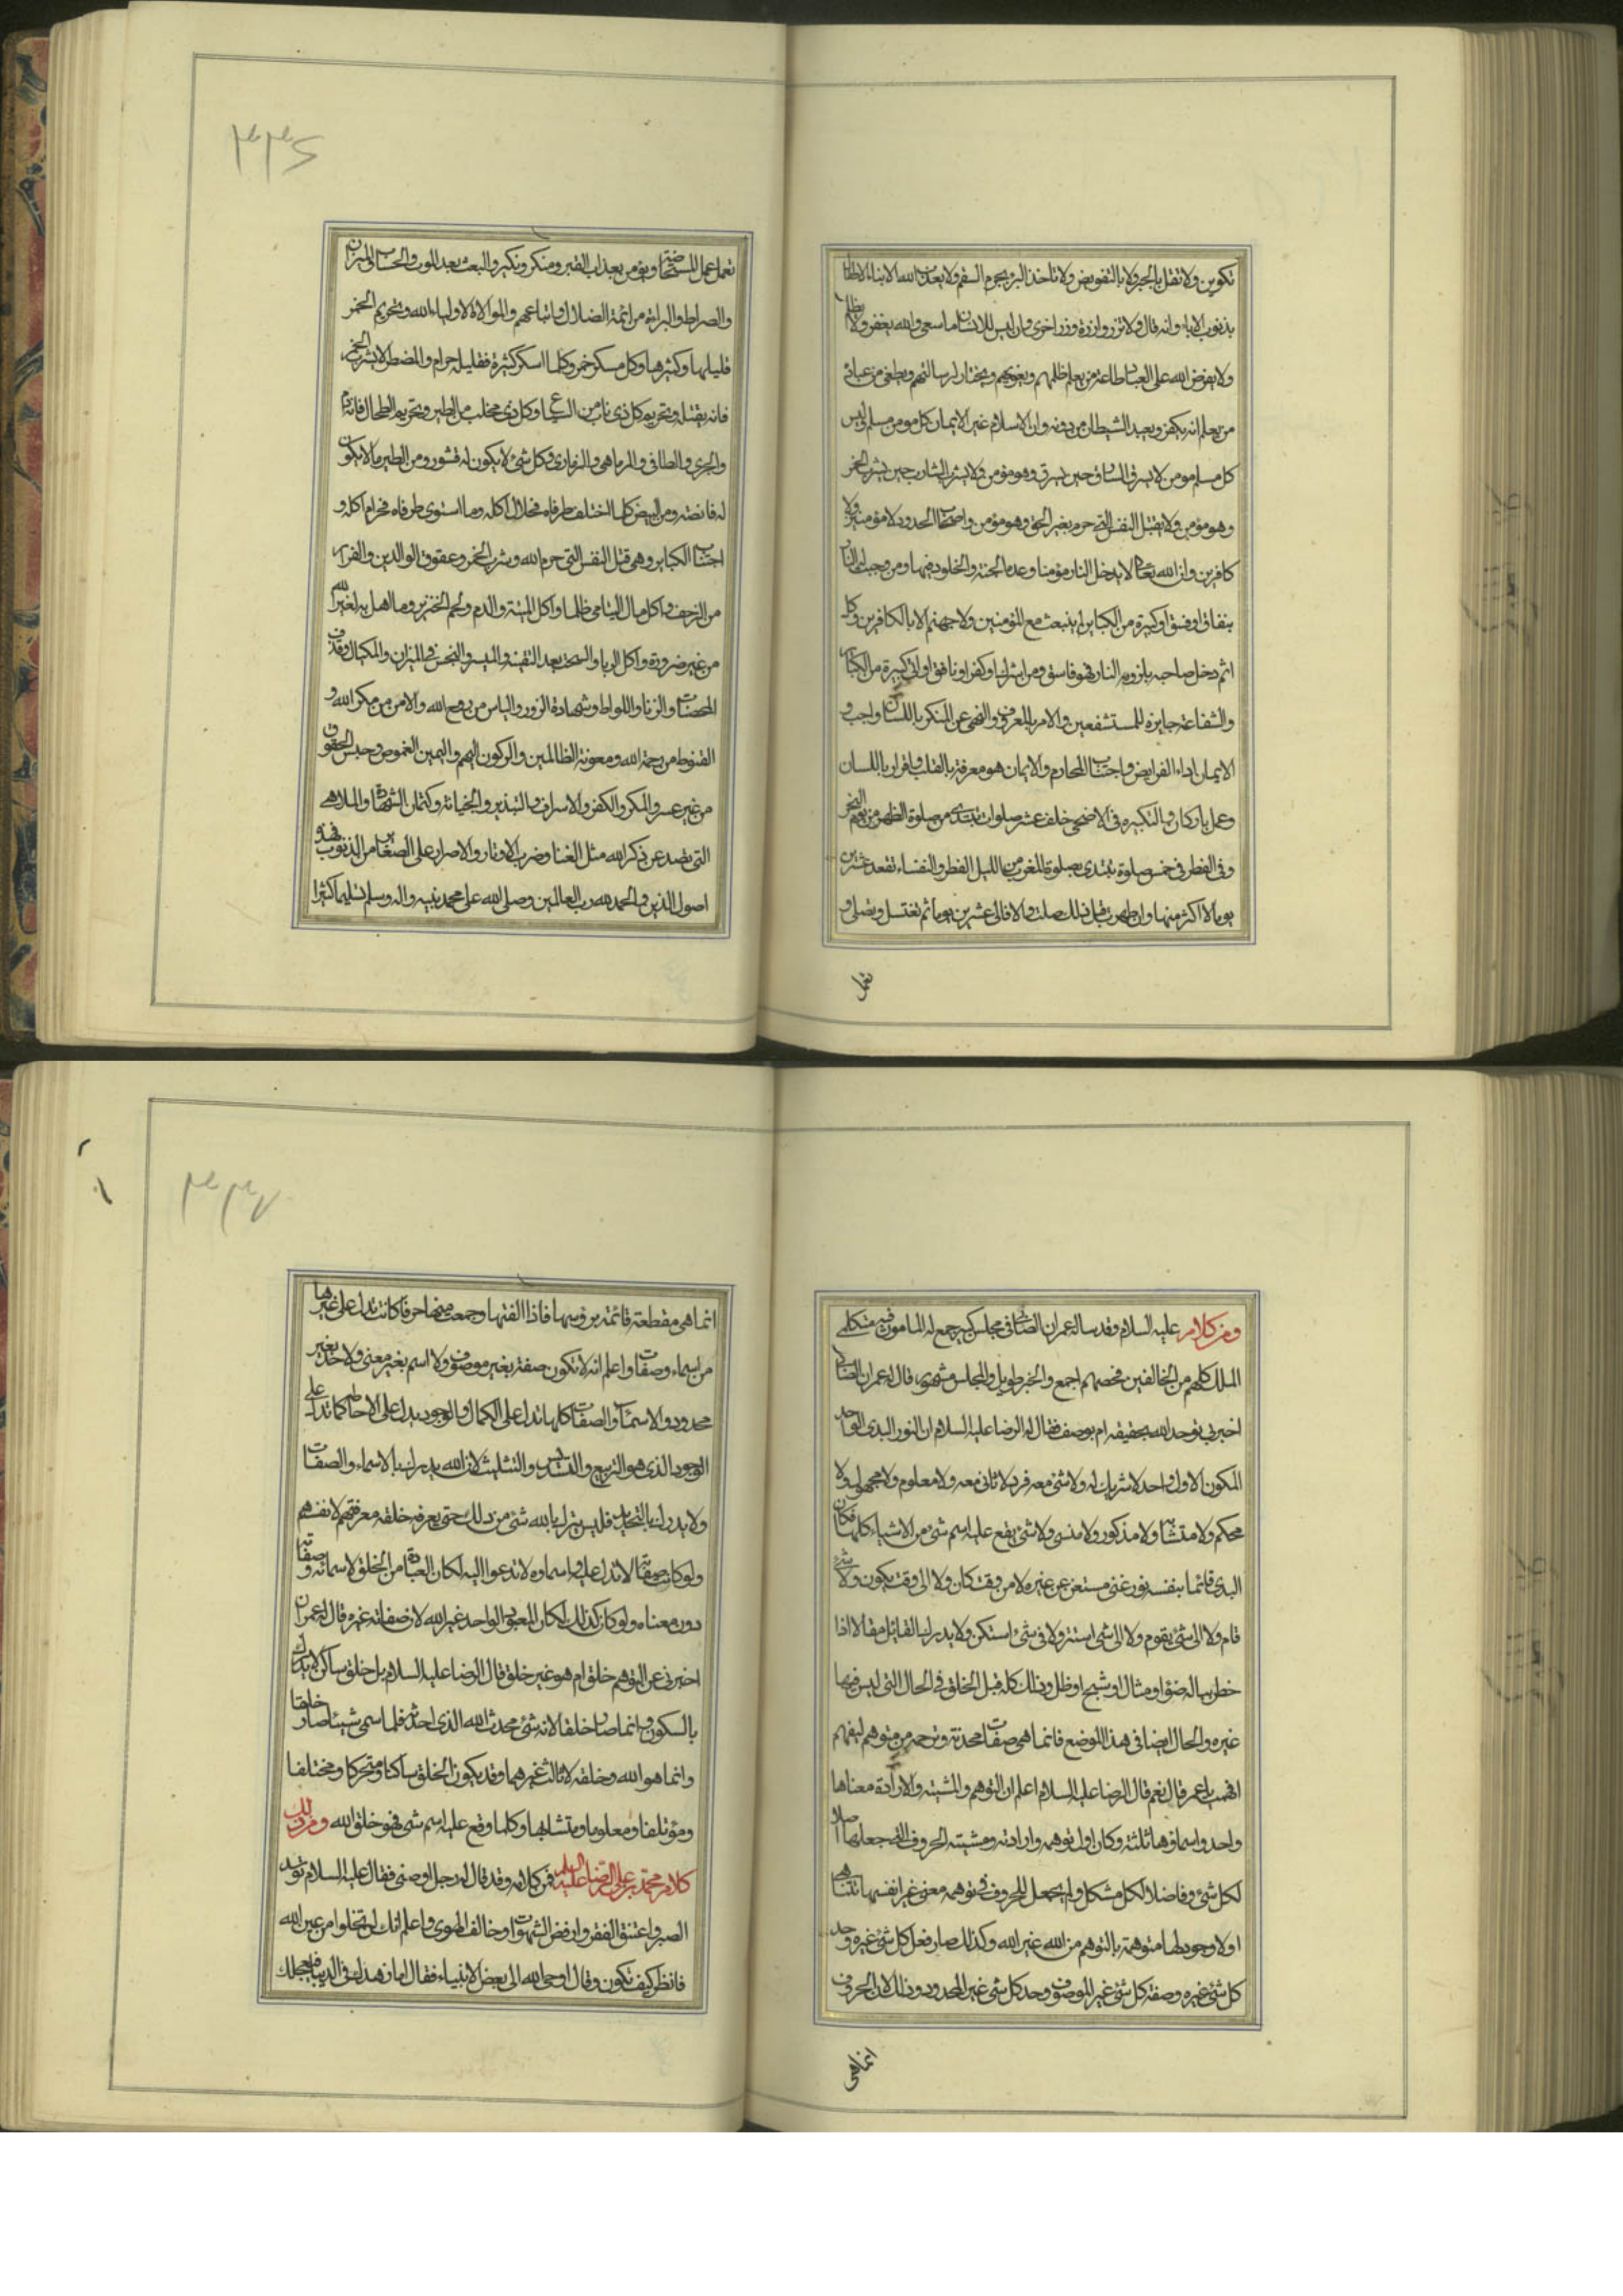 تكوين ولا تقل بالجبر ولا بالتفويض ولا تاخذ البرى بجرم السقم ولا يعذب الله الابناء الاطفال
بذنوب الاباء وانه قال ولا تزر وازرة وزر اخرى وان ليس للانسان الا ما سعى والله يغفر ولا يظلم
ولا يفرض الله على العباد طاعة من يعلم يظلمهم ويغويهم ويختار لرسالتهم ويصطفى من عباده
من يعلم انه يكفر ويعبد الشيطان من دونه وان الاسلام غير الايمان كل مومن مسلم وليس
كل مسلم مومن لا يسرق السارق حين يسرق وهو مؤمن ولا يشرب الشارب حين يشرب الخمر
وهو مؤمن ولا يقتل النفس التى حرم بغير الحق وهو مؤمن واصحاب الحدود لا مؤمنين ولا
كافرين وان الله تعالى لا يدخل النار مؤمنا وعده الجنة والخلود فيها ومن وجبت له النار
بنفاق او فسق او كبيرة من الكباير لم يبعث مع المؤمنين ولا جهنم الا بالكافرين وكل
اثم دخل صاحبه بلزومه النار فهو فاسق ومن اشرك او كفر او نافق او اتى كبيرة من الكباير
والشفاعة جايزة للمستشفعين والامر بالمعروف والنهى عن المنكر باللسان واجب و
الايمان اداء الفرايض واجتناب المحارم والايمان هو معرفة بالقلب واقرار باللسان
وعمل باركان والتكبير فى الاضحى خلف عشر صلوات تبتدى من صلوة الظهر من يوم النحر
وفى الفطر فى خمس صلوة يبتدى بصلوة المغرب من الليل الفطر والنفساء تقعد عشرين
يوما لا اكثر منها وان طهرت قبل ذلك صلت والا فالى عشرين يوما ثم تغتسل وتصلى و
تعمل
٣٣٦
تعمل عمل المستحاضة ويؤمن بعذاب القبر ومنكر ونكير والبعث بعد الموت والحساب والميزان
والصراط والبرائة من ائمة الضلال واتباعهم والموالاة لاولياء الله وتحريم الخمر
قليلها وكثيرها وكل مسكر خمر وكلما اسكر كثيره فقليله حرام والمضطر لا يشرب الخمر
فانه يقتله وتحريم كل ذى ناب من السباع وكل ذى مخلب من الطير وتحريم الطحال فانه دم
والجرى والطافى والمارماهى والزمار وكل شئ لا يكون له قشور ومن الطير ما لا يكون
له قانصة ومن البيض كلما اختلف طرفاه فحلال اكله وما استوى طرفاه فحرام اكله و
اجتناب الكباير وهى قتل النفس التى حرم الله وشرب الخمر وعقوق الوالدين والفرار
من الزحف واكل مال اليتامى ظلما واكل الميتة والدم ولحم الخنزير وما اهل به لغير الله
من غير ضرورة واكل الربا والسحت بعد البينة والميسر والبخس فى الميزان والمكيال وقذف
المحصنات والزنا واللواط وشهادة الزور والياس من روح الله والامن من مكر الله و
القنوط من رحمة الله ومعونة الظالمين والركون اليهم واليمين الغموص وحبس الحقوق
من غير عسر والمكر والكفر والاسراف والتبذير والخيانة وكتمان الشهادة والملاهى
التى تصد عن ذكر الله مثل الغنا وضرب الاوتار والاصرار على الصغاير من الذنوب فهذه
اصول الدين والحمد لله رب العالمين وصلى الله على محمد نبيه واله وسلم تسليما كثيرا
ومن كلامه عليه السلام وقد ساله عمران الصابى فى مجلس كبير جمع له المامون فيه متكلمى
الملل كلهم من المخالفين فخصمهم اجمع والخبر طويل والمجلس مشهور قال له عمران الصابى
اخبرنى نوحد الله بحقيقة ام بوصف فقال له الرضا عليه السلام ان النور البدى الواحد
المكون الاول واحد لا شريك له ولا شئ معه فرد لا ثانى معه ولا معلوم ولا مجهول ولا
محكم ولا متشابه ولا مذكور ولا منسى ولا شئ يقع عليه اسم شئ من الاشياء كلها فكان
البدى قائما بنفسه نور غنى مستغن عن غيره لا من وقت كان ولا الى وقت يكون ولا شئ
قام ولا الى شئ يقوم ولا الى شئ استتر ولا فى شئ استكن ولا يدرك القائل مقالا اذا
خطر بباله ضوء او مثال او شبح او ظل وذلك كله قبل الخلق فى الحال التى ليس فيها
غيره والحال ايضا فى هذا الموضع فانما هى صفات محدثة وترجمة من متوهم ليفهم
افهمت يا عمران قال نعم قال الرضا عليه السلام اعلم ان التوهم والمشية والارادة معناها
واحد واسماؤها ثلثة وكان اول توهمه وارادته ومشيته الحروف التى جعلها اصلا
لكل شئ وفاصلا لكل مشكل ولم يجعل للحروف فى توهمه معنى غير انفسها تتناهى
اولا وجود لها متوهمة بالتوهم من الله غير الله وكذلك صار فعل كل شئ غيره وحد
كل شئ غيره وصفة كل شئ غير الموصوف وحد كل شئ غير المحدود وذلك لان الحروف
انما هى
٣٣٧
انما هى مقطعة قائمة برؤسها فاذا الفتها وجمعت منها حرفا كانت تدل على غيرها
من اسماء وصفات واعلم انه لا تكون صفة بغير موصوف ولا اسم بغير معنى ولا حد بغير
محدود والاسماء والصفات كلها تدل على الكمال والوجود ولا تدل على الاحاطة كما تدل على
الوجود الذى هو التربيع والتسديس والتثليث لان الله يدرك بالاسماء والصفات
ولا يدرك بالتحديد فليس ينزل بالله شئ من ذلك حتى يعرفه خلقه معرفتهم لانفسهم
ولو كانت صفاته لا تدل عليه واسماوه لا تدعوا اليه لكان العبادة من الخلق لاسمائه وصفاته
دون معناه ولو كان كذلك لكان المعبود الواحد غير الله لان صفاته غيره قال له عمران
اخبرنى عن التوهم خلق ام هو غير خلق قال الرضا عليه السلام بل خلق ساكن لا يدرك
بالسكون وانما صار خلقا لانه شئ محدث الله الذى احدثه فلما سمى شيئا صار خلقا
وانما هو الله وخلقه لا ثالث غيرهما وقد يكون الخلق ساكنا ومتحركا ومختلفا
ومؤتلفا ومعلوما ومتشابها وكلما وقع عليه اسم شئ فهو خلق الله ومن ذلك
كلام محمد بن على الرضا عليه السلم فمن كلامه وقد قال له رجل اوصنى فقال عليه السلام توسد
الصبر واعتنق الفقر وارفض الشهوات وخالف الهوى واعلم انك لن تخلوا من عين الله
فانظر كيف تكون وقال اوحى الله الى بعض الانبياء فقال اما زهدك فى الدنيا فتعجلك